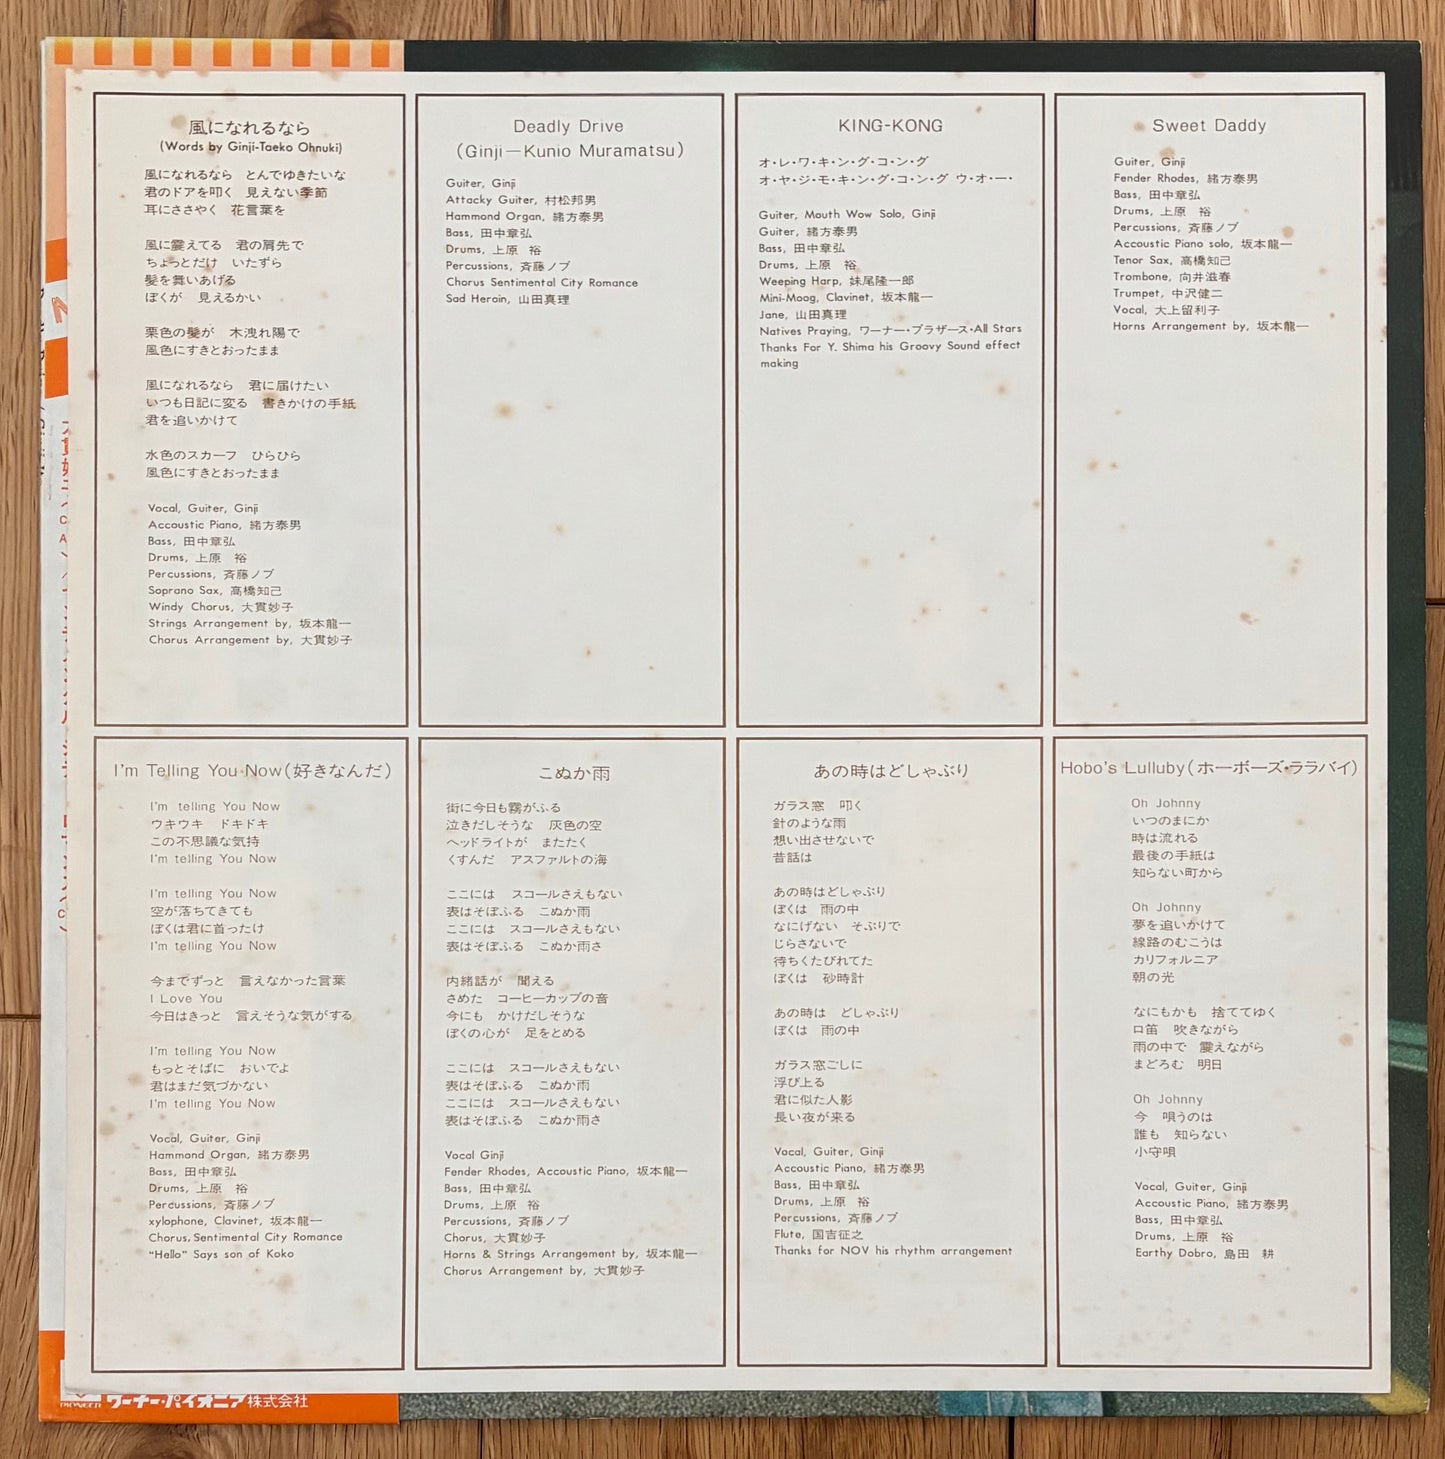 風になれるなら
(Words by Ginji-Taeko Ohnuki)
風になれるなら　とんでゆきたいな
君のドアを叩く　見えない季節
耳にささやく　花言葉を
風に震えてる　君の肩先で
ちょっとだけ　いたずら
髪を舞いあげる
ぼくが　見えるかい
栗色の髪が　木洩れ陽で
風色にすきとおったまま
風になれるなら　君に届けたい
いつも日記に変る　書きかけの手紙
君を追いかけて
水色のスカーフ　ひらひら
風色にすきとおったまま
Vocal, Guiter, Ginji
Accoustic Piano, 緒方泰男
Bass, 田中章弘
Drums, 上原　裕
Percussions, 斉藤ノブ
Soprano Sax, 高橋知己
Windy Chorus, 大貫妙子
Strings Arrangement by, 坂本龍一
Chorus Arrangement by, 大貫妙子
Deadly Drive
(Ginji－Kunio Muramatsu)
Guiter, Ginji
Attacky Guiter, 村松邦男
Hammond Organ, 緒方泰男
Bass, 田中章弘
Drums, 上原　裕
Percussions, 斉藤ノブ
Chorus Sentimental City Romance
Sad Heroin, 山田真理
KING-KONG
オ・レ・ワ・キ・ン・グ・コ・ン・グ
オ・ヤ・ジ・モ・キ・ン・グ・コ・ン・グ ウ・オ・ー・
Guiter, Mouth Wow Solo, Ginji
Guiter, 緒方泰男
Bass, 田中章弘
Drums, 上原　裕
Weeping Harp, 妹尾隆一郎
Mini-Moog, Clavinet, 坂本龍一
Jane, 山田真理
Natives Praying, ワーナー・ブラザース・All Stars
Thanks For Y. Shima his Groovy Sound effect
making
Sweet Daddy
Guiter, Ginji
Fender Rhodes, 緒方泰男
Bass, 田中章弘
Drums, 上原　裕
Percussions, 斉藤ノブ
Accoustic Piano solo, 坂本龍一
Tenor Sax, 高橋知己
Trombone, 向井滋春
Trumpet, 中沢健二
Vocal, 大上留利子
Horns Arrangement by, 坂本龍一
I'm Telling You Now(好きなんだ)
I'm telling You Now
ウキウキ　ドキドキ
この不思議な気持
I'm telling You Now
I'm telling You Now
空が落ちてきても
ぼくは君に首ったけ
I'm telling You Now
今までずっと　言えなかった言葉
I Love You
今日はきっと　言えそうな気がする
I'm telling You Now
もっとそばに　おいでよ
君はまだ気づかない
I'm telling You Now
Vocal, Guiter, Ginji
Hammand Organ, 緒方泰男
Bass, 田中章弘
Drums, 上原　裕
Percussions, 斉藤ノブ
xylophone, Clavinet, 坂本龍一
Chorus, Sentimental City Romance
"Hello" Says son of Koko
こぬか雨
街に今日も霧がふる
泣きだしそうな　灰色の空
ヘッドライトが　またたく
くすんだ　アスファルトの海
ここには　スコールさえもない
表はそぼふる　こぬか雨
ここには　スコールさえもない
表はそぼふる　こぬか雨さ
内緒話が　聞える
さめた　コーヒーカップの音
今にも　かけだしそうな
ぼくの心が　足をとめる
ここには　スコールさえもない
表はそぼふる　こぬか雨
ここには　スコールさえもない
表はそぼふる　こぬか雨さ
Vocal Ginji
Fender Rhodes, Accoustic Piano, 坂本龍一
Bass, 田中章弘
Drums, 上原　裕
Percussions, 斉藤ノブ
Chorus, 大貫妙子
Horns & Strings Arrangement by, 坂本龍一
Chorus Arrangement by, 大貫妙子
あの時はどしゃぶり
ガラス窓　叩く
針のような雨
想い出させないで
昔話は
あの時はどしゃぶり
ぼくは　雨の中
なにげない　そぶりで
じらさないで
待ちくたびれてた
ぼくは　砂時計
あの時は　どしゃぶり
ぼくは　雨の中
ガラス窓ごしに
浮び上る
君に似た人影
長い夜が来る
Vocal, Guiter, Ginji
Accoustic Piano, 緒方泰男
Bass, 田中章弘
Drums, 上原　裕
Percussions, 斉藤ノブ
Flute, 国吉征之
Thanks for NOV his rhythm arrangement
Hobo's Lulluby(ホーボーズ・ララバイ)
Oh Johnny
いつのまにか
時は流れる
最後の手紙は
知らない町から
Oh Johnny
夢を追いかけて
線路のむこうは
カリフォルニア
朝の光
なにもかも　捨ててゆく
口笛　吹きながら
雨の中で　震えながら
まどろむ　明日
Oh Johnny
今　唄うのは
誰も　知らない
小守唄
Vocal, Guiter, Ginji
Accoustic Piano, 緒方泰男
Bass, 田中章弘
Drums, 上原　裕
Earthy Dobro, 島田　耕
PIONEER ワーナー・パイオニア株式会社